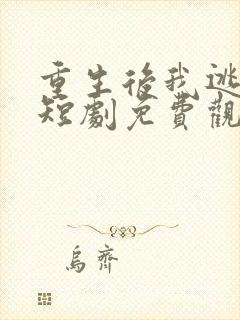 重生後我逃
短劇免費觀
烏齊